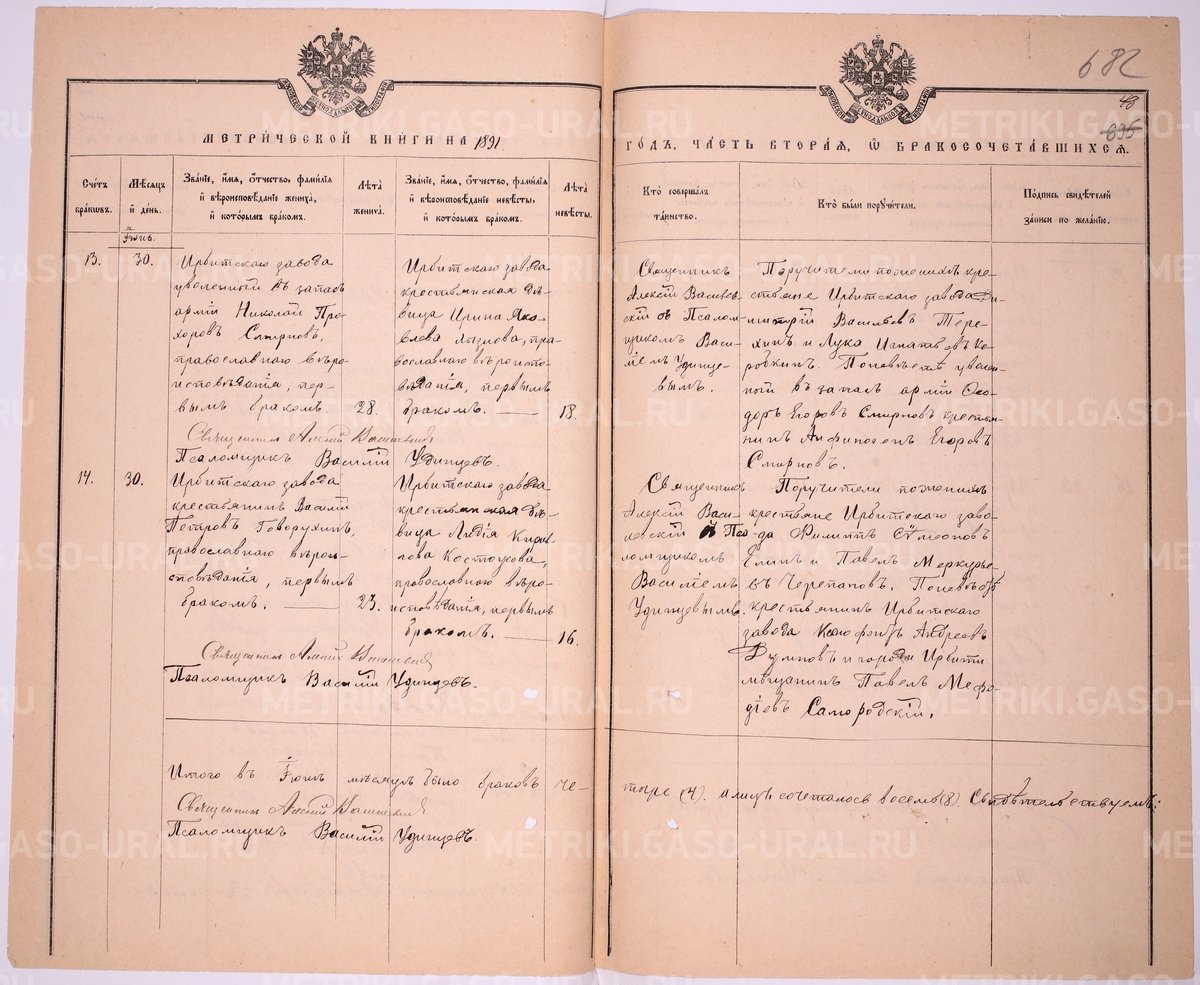 682
48
695
МЕТРИ́ЧЕСКОЙ КНИ́ГИ НА 1891
ГО́ДЪ, ЧА́СТЬ ВТОРА́Я, Ѽ БРАКОСОЧЕТА́ВШИХСЯ.
Сче́тъ бра́кωвъ.
Мѣ́сяцъ и҆ де́нь.
Зва́нїе, и҆́мя, ѻ҆́тчество, фами́лїя и҆ вѣроисповѣ́данїе жениха̀, и҆ кото́рымъ бра́комъ.
Лѣ́та жениха̀.
Зва́нїе, и҆́мя, ѻ҆́тчество, фами́лїя и҆ вѣроисповѣ́данїе невѣ́сты, и҆ кото́рымъ бра́комъ.
Лѣ́та невѣ́сты.
Кто̀ соверша́лъ та́инство.
Кто̀ бы́ли порꙋчи́тели.
По́дпись свидѣ́телей за́писи по жела́нїю.
Іюнь.
13.
30.
Ирбитскаго завода
уволенный въ запасъ
арміи Николай Про-
хоровъ Смирновъ,
православнаго вѣро-
исповѣданія, пер-
вымъ бракомъ.
28.
Ирбитскаго завода
крестьянская дѣ-
вица Ирина Яко-
влева Лызлова, пра-
вославнаго вѣроиспо-
вѣданія, первымъ
бракомъ.
18.
Священникъ
Алексій Васнев-
скій съ Псалом-
щикомъ Васи-
ліемъ Удинце-
вымъ.
Поручители по женихѣ кре-
стьяне Ирбитскаго завода Ди-
митрій Васильевъ Тере-
хинъ и Лука Игнатьевъ Ко-
робкинъ. По невѣстѣ уволен-
ный въ запасъ арміи Ѳео-
доръ Егоровъ Смирновъ крестья-
нинъ Анфиногенъ Егоровъ
Смирновъ.
Священникъ Алексій
Псаломщикъ Василій Удинцевъ.
14.
30.
Ирбитскаго завода
крестьянинъ Василій
Петровъ Говорухинъ,
православнаго вѣрои-
сповѣданія, первымъ
бракомъ.
23.
Ирбитскаго завода
крестьянская дѣ-
вица Лидія Кирил-
лова Костоусова,
православнаго вѣро-
исповѣданія, первымъ
бракомъ.
16.
Священникъ
Алексій Васи-
левскій съ Пса-
ломщикомъ
Василіемъ
Удинцевымъ.
Поручители по женихѣ
крестьяне Ирбитскаго заво-
да Филиппъ Сѵмеоновъ
Елинъ и Павелъ Меркурье-
въ Черепановъ. По невѣстѣ
крестьянинъ Ирбитскаго
завода Ксенофонтъ Андреевъ
и города Ирбити
мѣщанинъ Павелъ Мефо-
діевъ Самородскій.
Священникъ Алексій
Псаломщикъ Василій Удинцевъ.
Итого въ Іюнѣ мѣсяцѣ было браковъ че-
тыре (4). а лицъ сочеталось восемь (8). Свидѣтельствуемъ:
Священникъ Алексій
Псаломщикъ Василій Удинцевъ
METRIKI.GASO-URAL.RU